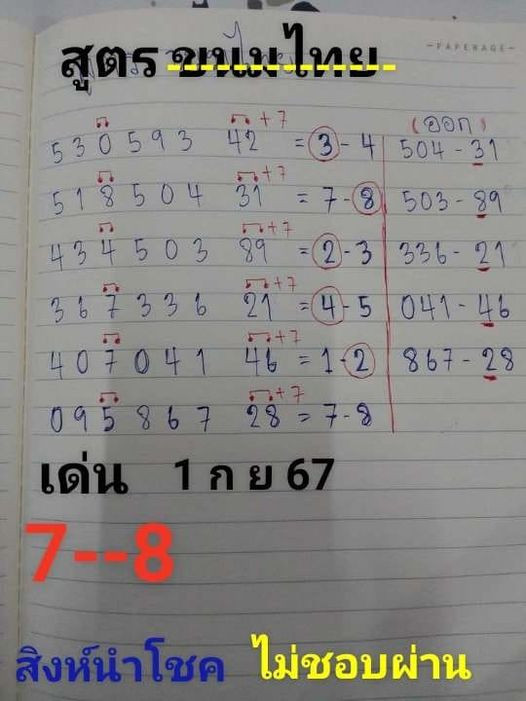 สูตร ขนมไทย
-PAPERAGE-
(ออก)
530593 42 +7 = 3-4 504-31
518504 31 +7 = 7-8 503-89
434503 89 +7 = 2-3 336-21
367336 21 +7 = 4-5 041-46
407041 46 +7 = 1-2 867-28
095867 28 +7 = 7-8
เด่น 1 ก ย 67
7--8
สิงห์นำโชค ไม่ชอบผ่าน